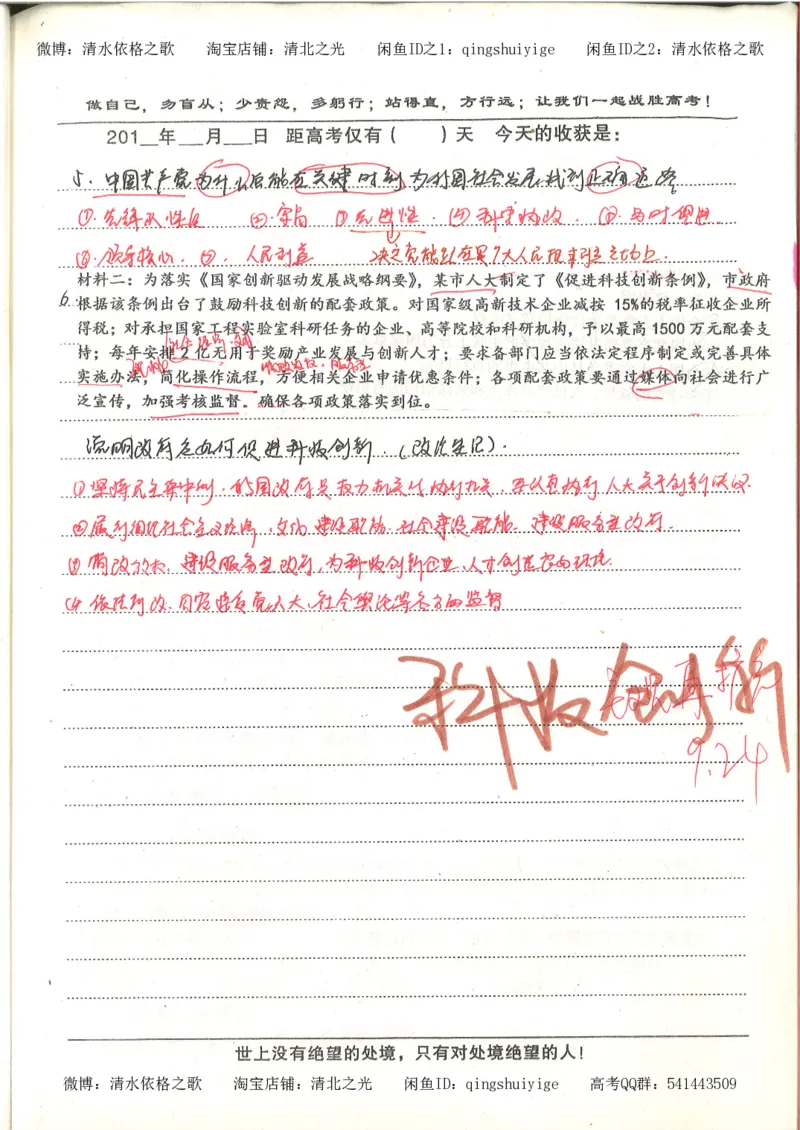 微博：清水依格之歌 淘宝店铺：清北之光 闲鱼ID之1：qingshuiyige 闲鱼ID之2：清水依格之歌
做自己，勿盲从；少责怨，多躬行；站得直，方行远；让我们一起战胜高考！
201__年___月___日 距高考仅有（ ）天 今天的收获是：
5. 中国共产党为什么后能在关键时刻为我国社会发展找到正确道路
①. 先锋队性质 ②. 宗旨 ③ 先进性. ④ 科学执政. ⑤. 与时俱进
⑥. 领导核心. ⑦. 人民利益 决定党能以最广大人民根本利益
材料二：为落实《国家创新驱动发展战略纲要》，某市人大制定了《促进科技创新条例》，市政府
6. 根据该条例出台了鼓励科技创新的配套政策。对国家级高新技术企业减按 15%的税率征收企业所
得税；对承担国家工程实验室科研任务的企业、高等院校和科研机构，予以最高 1500 万元配套支
持；每年安排 2 亿元用于奖励产业发展与创新人才；要求各部门应当依法定程序制定或完善具体
实施办法，简化操作流程，方便相关企业申请优惠条件；各项配套政策要通过媒体向社会进行广
泛宣传，加强考核监督，确保各项政策落实到位。
说明政府是如何促进科技创新.（政治生活）.
①坚持民主集中制. 我国政府是权力机关的执行机关，要认真执行人大关于创新决议.
②履行组织社会主义经济，文化建设职能. 社会建设职能. 建设服务型政府.
③简政放权. 建设服务型政府，为科技创新企业、人才创造良好环境.
④依法行政. 自觉接受人大、社会舆论等各方面监督
科技创新
9.24
世上没有绝望的处境，只有对处境绝望的人！
微博：清水依格之歌 淘宝店铺：清北之光 闲鱼ID：qingshuiyige 高考QQ群：541443509